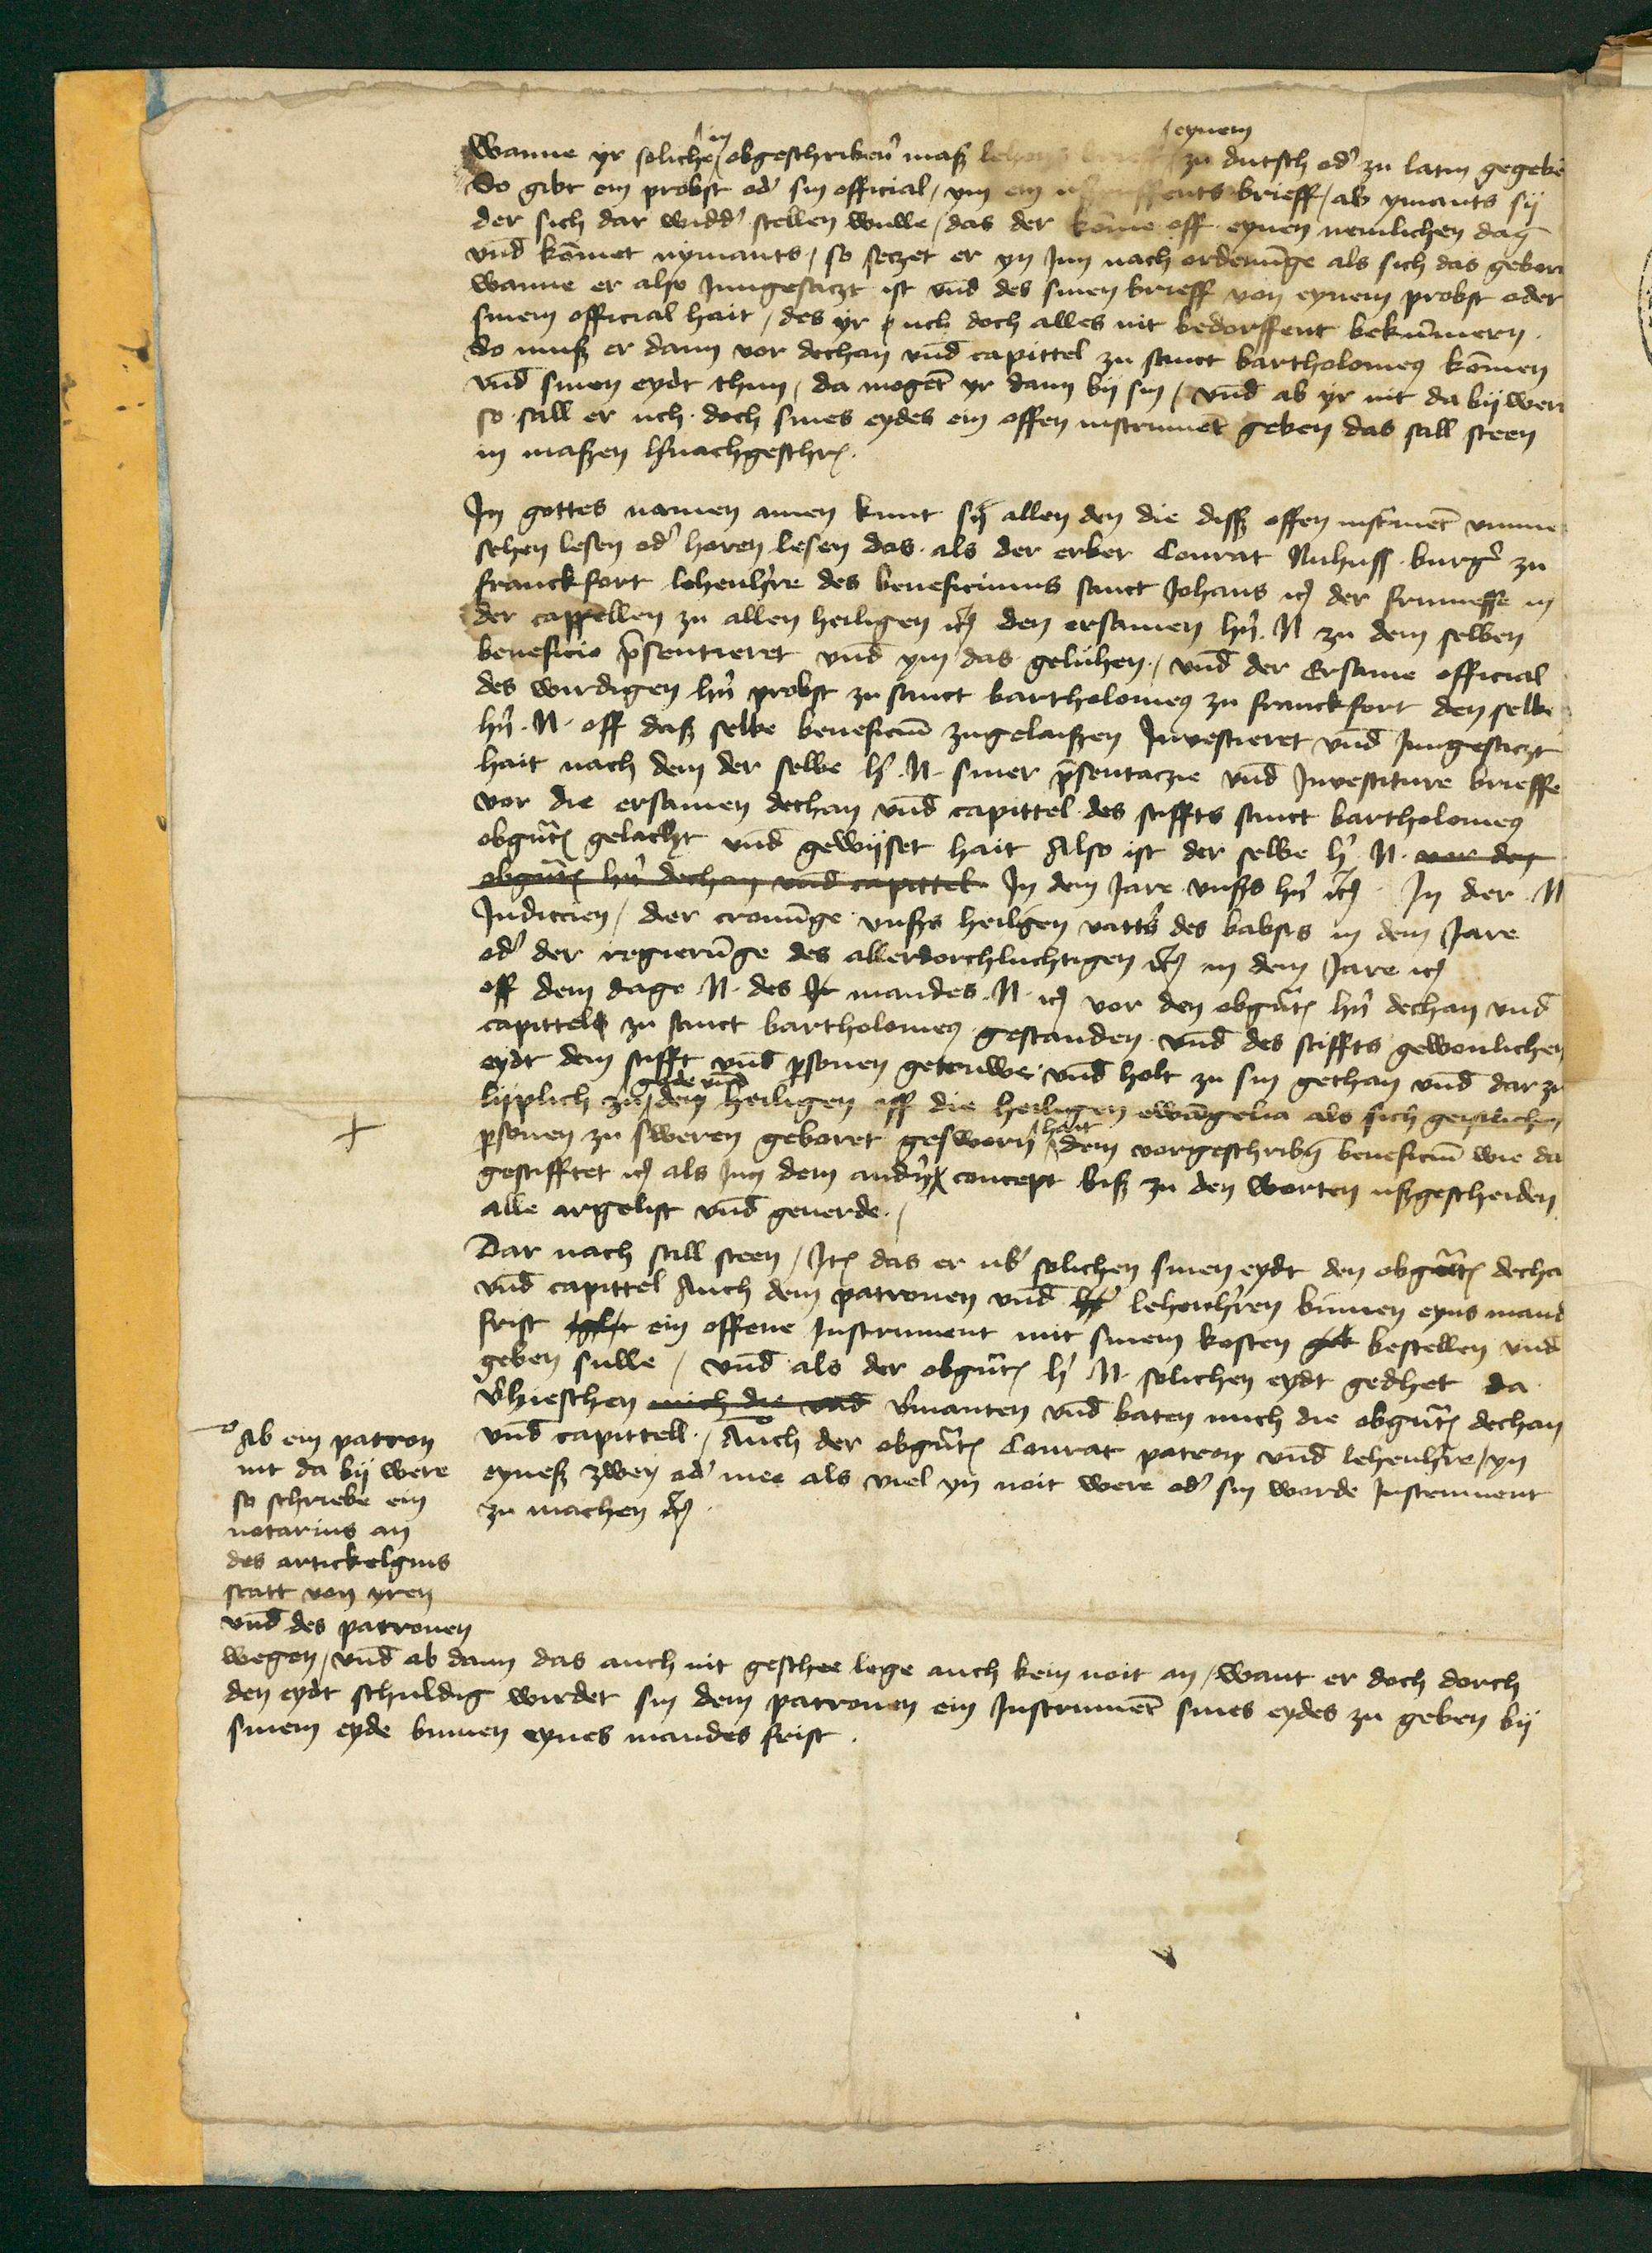 in eynem
Wanne yr soliche obgeschriben̄ maß lehens brieff zu dutsch od' zu latin gegebē
So gibt ein probst od' sin official / ym ein ußruffents brieff / ab ymants sij
der sich dar widd' stellen wulle / das der kōme off eynen nemlichen dag
vnd kōmet nymants / so seczet er yn Inn nach ordenūge als sich das gebort
wanne er also Inngesaczt ist vnd des sinen brieff von eynem probst oder
sinem official hait / des yr uch doch alles nit bedorffent bekūmern .
do muß er dann vor dechan vnd capittel zu sanct bartholomeꝰ kōmen
vnd sinen eydt thun / da mogēt yr dann bij sin / vnd ab yr nit da bij weri
so sall er uch doch sines eydes ein offen instrumēt geben das sall steen
in maßen h'nachgeschr .
In gottes namen amen kunt sij allen den die diß offen instrumēt vmme
sehen lesen od' horen lesen das als der erber Conrat Nuhuß burg' zu
Franckfort lehenh're des beneficiums sanct Johans ꝛc der frumeße in
der cappellen zu allen heiligen ꝛc den ersamen hn̄ . N zu dem selben
beneficio p̄sentieret vnd ym das geluhen / vnd der Ersame official
des wirdigen hn̄ probst zu sanct bartholomeꝰ zu Franckfort den selbe
hn̄ . N . off daß selbe beneficiū zugelaißen Investieret vnd Inngesaczt
hait nach dem der selbe h' . N . siner p̄sentaczie vnd Investiture brieffe
vor die ersamen dechan vnd capittel des stiffts sanct bartholomeꝰ
obgn̄t gelacht vnd gewijset hait Also ist der selbe h' . N . vor den
obgn̄t hn̄ dechan vnd capittel In dem Jare vnßs hn̄ ꝛc In der N
Indictien / der cronūge vnßs heilgen vatt's des babsts in dem Jare
od' der regierūge des allerdorchluchtigen ꝛc in dem Jare ꝛc
off dem dage N . des mandes . N . ꝛc vor den obgn̄t hn̄ dechan vnd
capittel zu sanct bartholomeꝰ gestanden vnd des stiffts gewonlichen
eydt dem stifft vnd p̄sonen getruwe vnd holt zu sin gethan vnd dar zu
gode vnd
lijplich zu den heiligen uff die heiligen ewāgelia als sich geistlichen
hait
p̄sonen zu sweren geboret gesworn dem vorgeschribn̄ beneficiū wie da
gestifftet ꝛc als Inn dem andn̄ concept biß zu den worten ußgescheiden
alle argelist vnd geuerde . /
Dar nach sall steen / Itē das er ub' solichen sinen eydt den obgn̄tē decha
vnd capittel Auch dem patronen vnd lehenh'ren bīnnen eyns mand
frist ein offene Instrument mit sinem kosten bestellen vnd
geben sulle / vnd als der obgn̄t h' N . solichen eydt gedhet da
v'hieschen mich die vnd v'manten vnd baten mich die obgn̄t dechan
vnd capittell . / Auch der obgn̄t Conrat patron vnd lehenh're / yn
eyneß zwey od' mee als viel yn noit were od' sin worde Instrument
zu machen ꝛc .
Ab ein patron
nit da bij were
so schriebe ein
notarius an
des artickelgins
statt von yren
vnd des patronen
wegen / vnd ab dann das auch nit geschee lege auch kein noit an / want er doch dorch
den eydt schuldig wirdet sin dem patronen ein Instrumēt sines eydes zu geben bij
sinem eyde bīnnen eynes mandes frist .